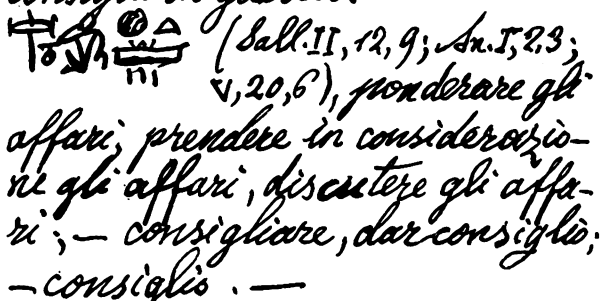 (Sall. II, 12, 9; An. I, 2, 3;
V, 20, 6), ponderare gli
affari, prendere in considerazio-
ni gli affari, discutere gli affa-
ri; — consigliare, dar consiglio;
— consiglio. —